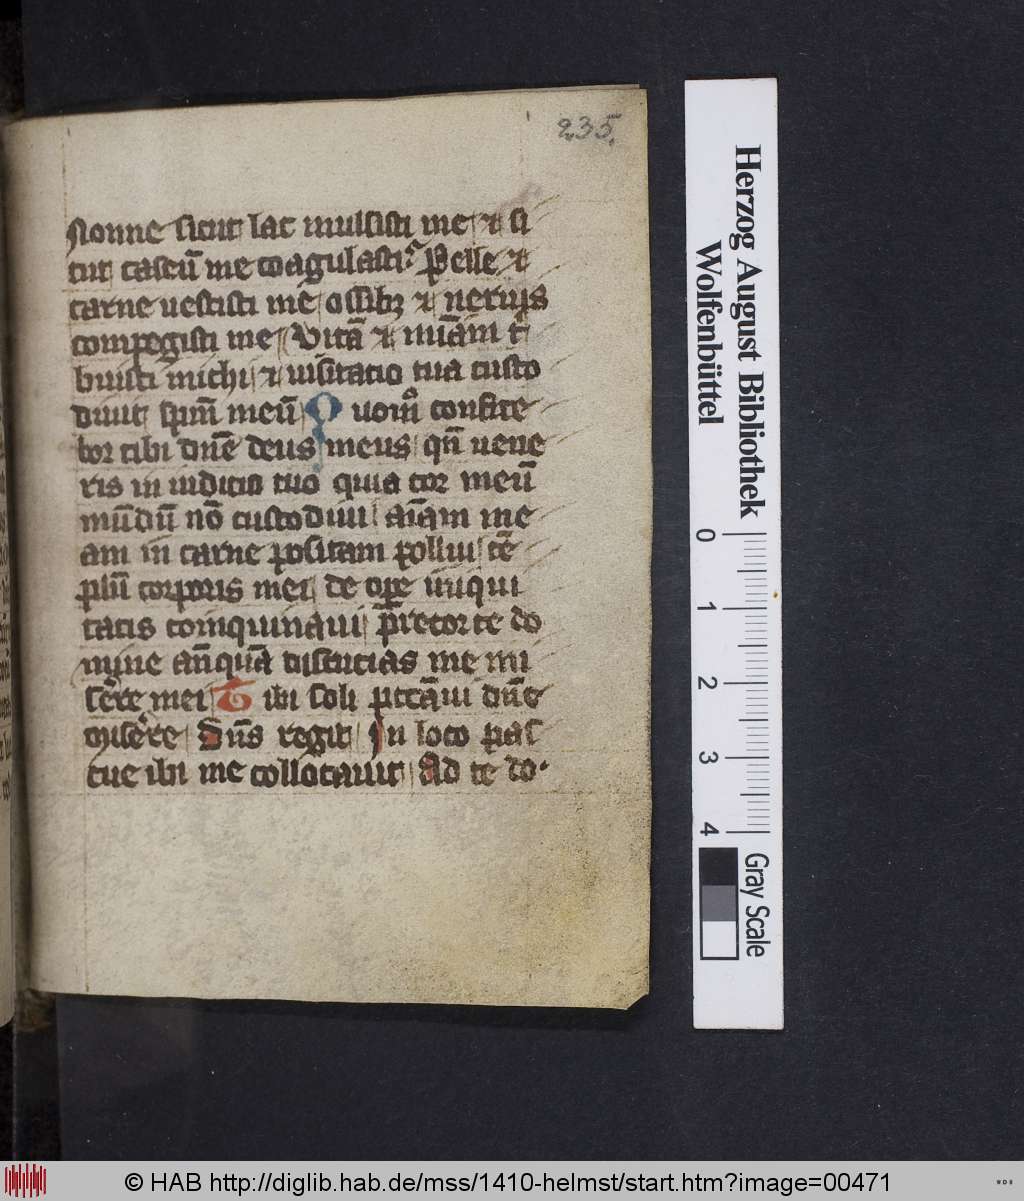 235.
Nonne sicut lac mulsisti me ⁊ si
cut caseū me coagulasti. Pelle ⁊
carne uestisti me ossibꝫ ⁊ neruis
compegisti me Vitā ⁊ mīam t̄
buisti michi ⁊ uisitatio tua custo
diuit spm̄ meū Quom̊ confite
bor tibi dn̄e deus meus qn̄ uene
ris in iudicio tuo quia cor meū
mūdū nō custodiui aīam me
am in carne positam pollui tē
plū corporis mei de oꝑe iniqui
tatis coinquinaui p̄recor te do
mine an̄quā discucias me mi
sēre mei Tibi soli peccāui dn̄e
miserere Dn̄s regit In loco pas
cue ibi me collocauit Ad te do
Herzog August Bibliothek
Wolfenbüttel
0 1 2 3 4
Gray Scale
© HAB http://diglib.hab.de/mss/1410-helmst/start.htm?image=00471